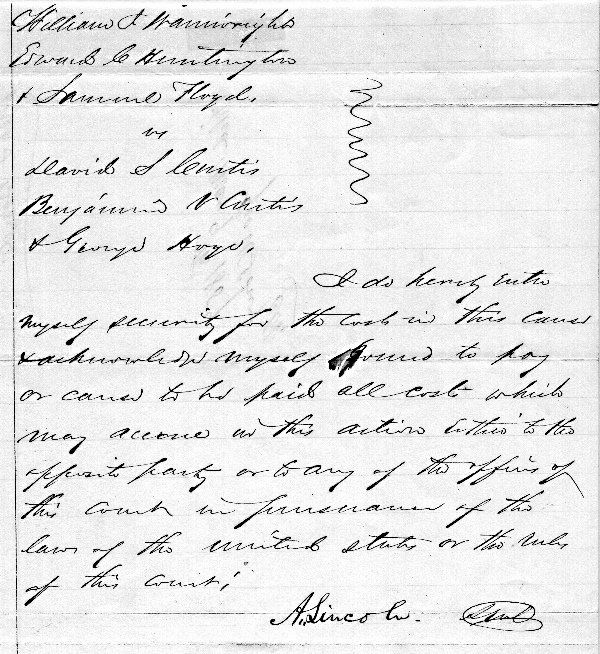 William J Wainwright
Edward C Huntington
& Samuel Floyd.
vs
David S Curtis
Benjamin V Curtis
& George Hoge.
I do hereby Enter
myself security for the cost in this cause
& acknowledge myself bound to pay
or cause to be paid all costs which
may accrue in this action Either to the
opposite party or to any of the officers of
this Court in pursuance of the
laws of the united states or the rules
of this court;
A. Lincoln. Seal